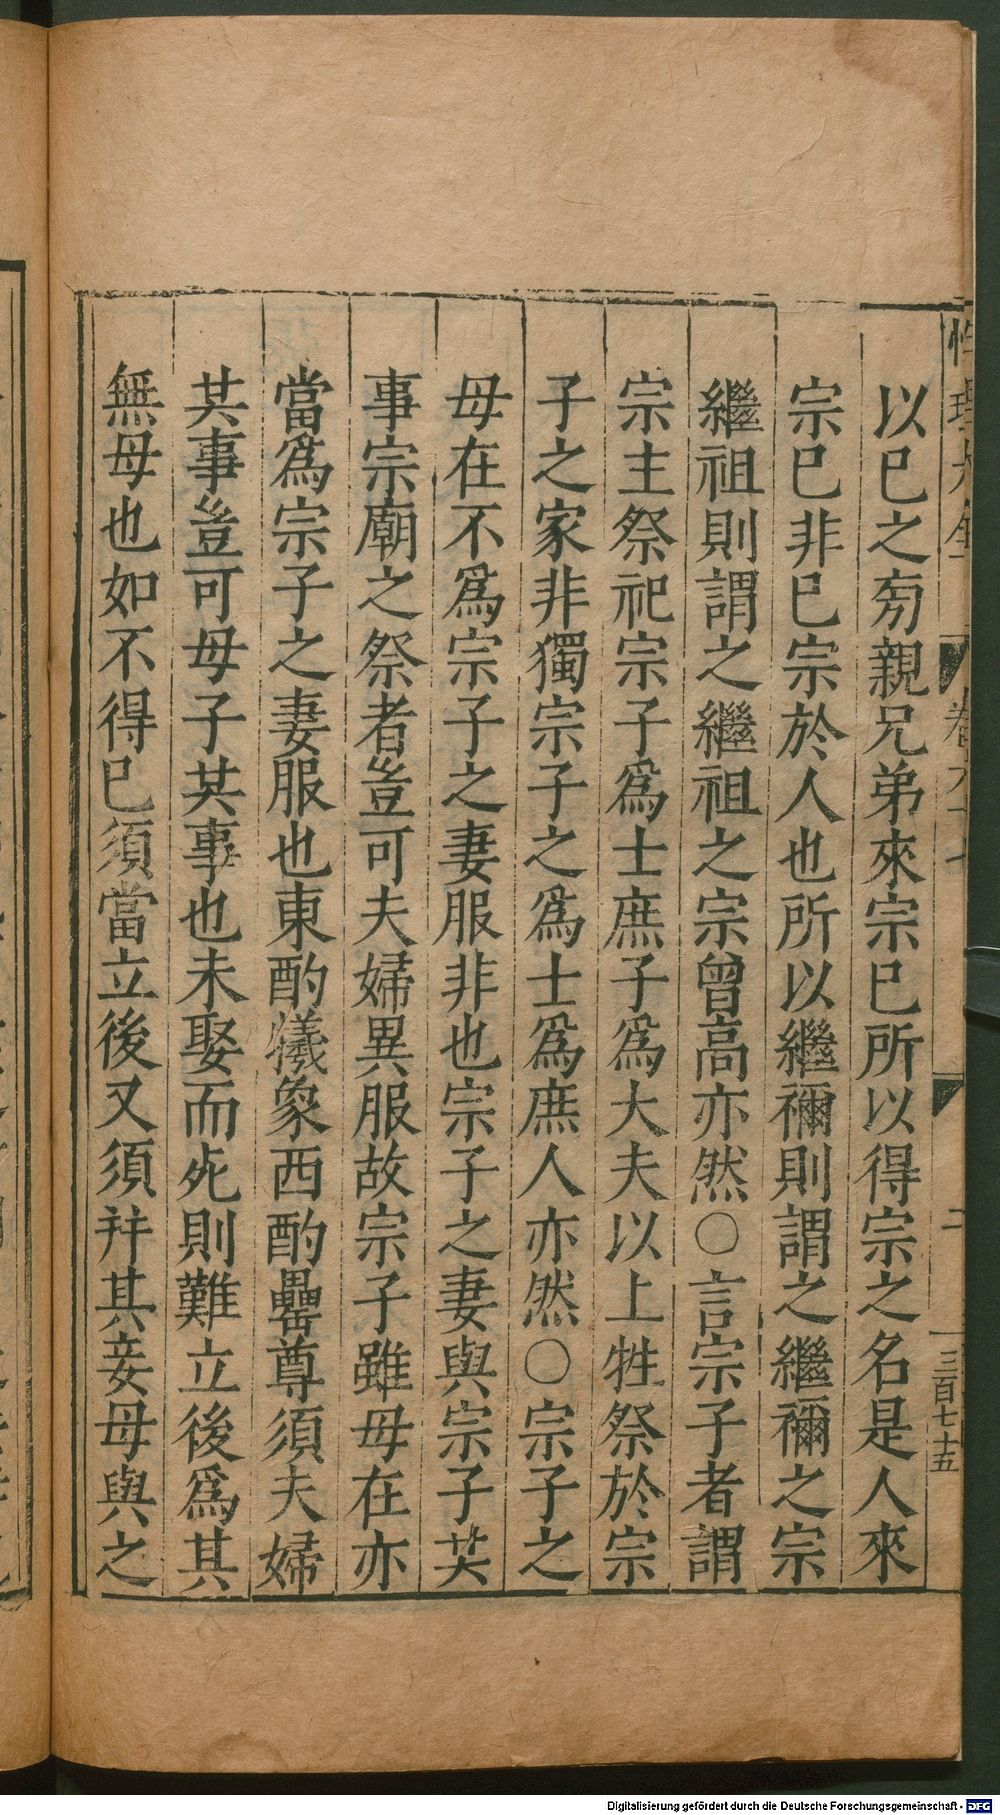 性理大全 卷六十七 二 三百七十五
以巳之旁親兄弟來宗巳所以得宗之名是人來
宗巳非巳宗於人也所以繼禰則謂之繼禰之宗
繼祖則謂之繼祖之宗曾高亦然○言宗子者謂
宗主祭祀宗子爲士庶子爲大夫以上牲祭於宗
子之家非獨宗子之爲士爲庶人亦然○宗子之
母在不爲宗子之妻服非也宗子之妻與宗子共
事宗廟之祭者豈可夫婦異服故宗子雖母在亦
當爲宗子之妻服也東酌犧象西酌罍尊須夫婦
共事豈可母子共事也未娶而死則難立後爲其
無母也如不得巳須當立後又須并其妾母與之
Digitalisierung gefördert durch die Deutsche Forschungsgemeinschaft - DFG